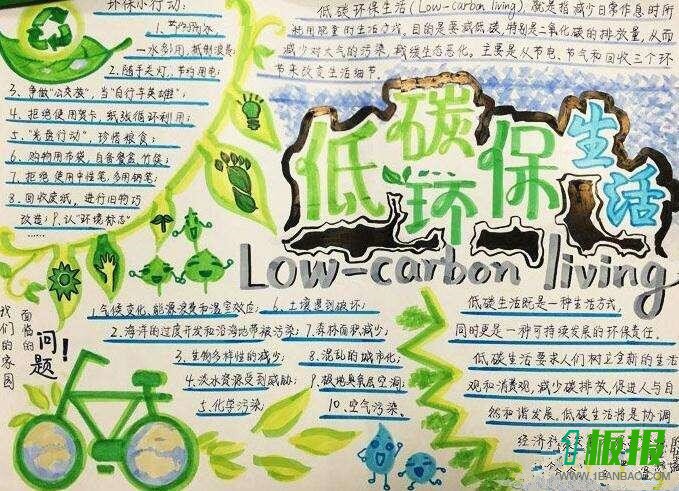 环保小行动:
1、节约用水
一水多用,抵制浪费
2、随手关灯,节约用电;
3、争做"公交族",当"自行车英雄";
4、拒绝使用贺卡,纸张循环利用;
5、"光盘行动",珍惜粮食;
6、购物用布袋,自备餐盒、竹筷;
7、拒绝使用中性笔,多用钢笔;
8、回收废纸,进行旧物巧
改造;9、认"环境标志"
低碳环保生活(Low-carbon living),就是指减少日常作息时所
耗用能量的生活方式,目的是要减低碳,特别是二氧化碳的排放量,从而
减少对大气的污染,减缓生态恶化。主要是从节电、节气和回收三个环
节来改变生活细节。
低碳环保生活
Low-carbon living
我们的家园
面临的
问题!
1.气候变化、能源浪费和温室效应;
2.海洋的过度开发和沿海地带被污染;
3.生物多样性的减少;
4.淡水资源受到威胁;
5.化学污染;
6.土壤遭到破坏;
7.森林面积减少;
8.混乱的城市化;
9.极地臭氧层空洞;
10.空气污染。
低碳生活既是一种生活方式,
同时更是一种可持续发展的环保责任。
低碳生活要求人们树立全新的生活
观和消费观,减少碳排放,促进人与自
然和谐发展。低碳生活将是协调
经济社
板报
WWW.1BANBAO.COM